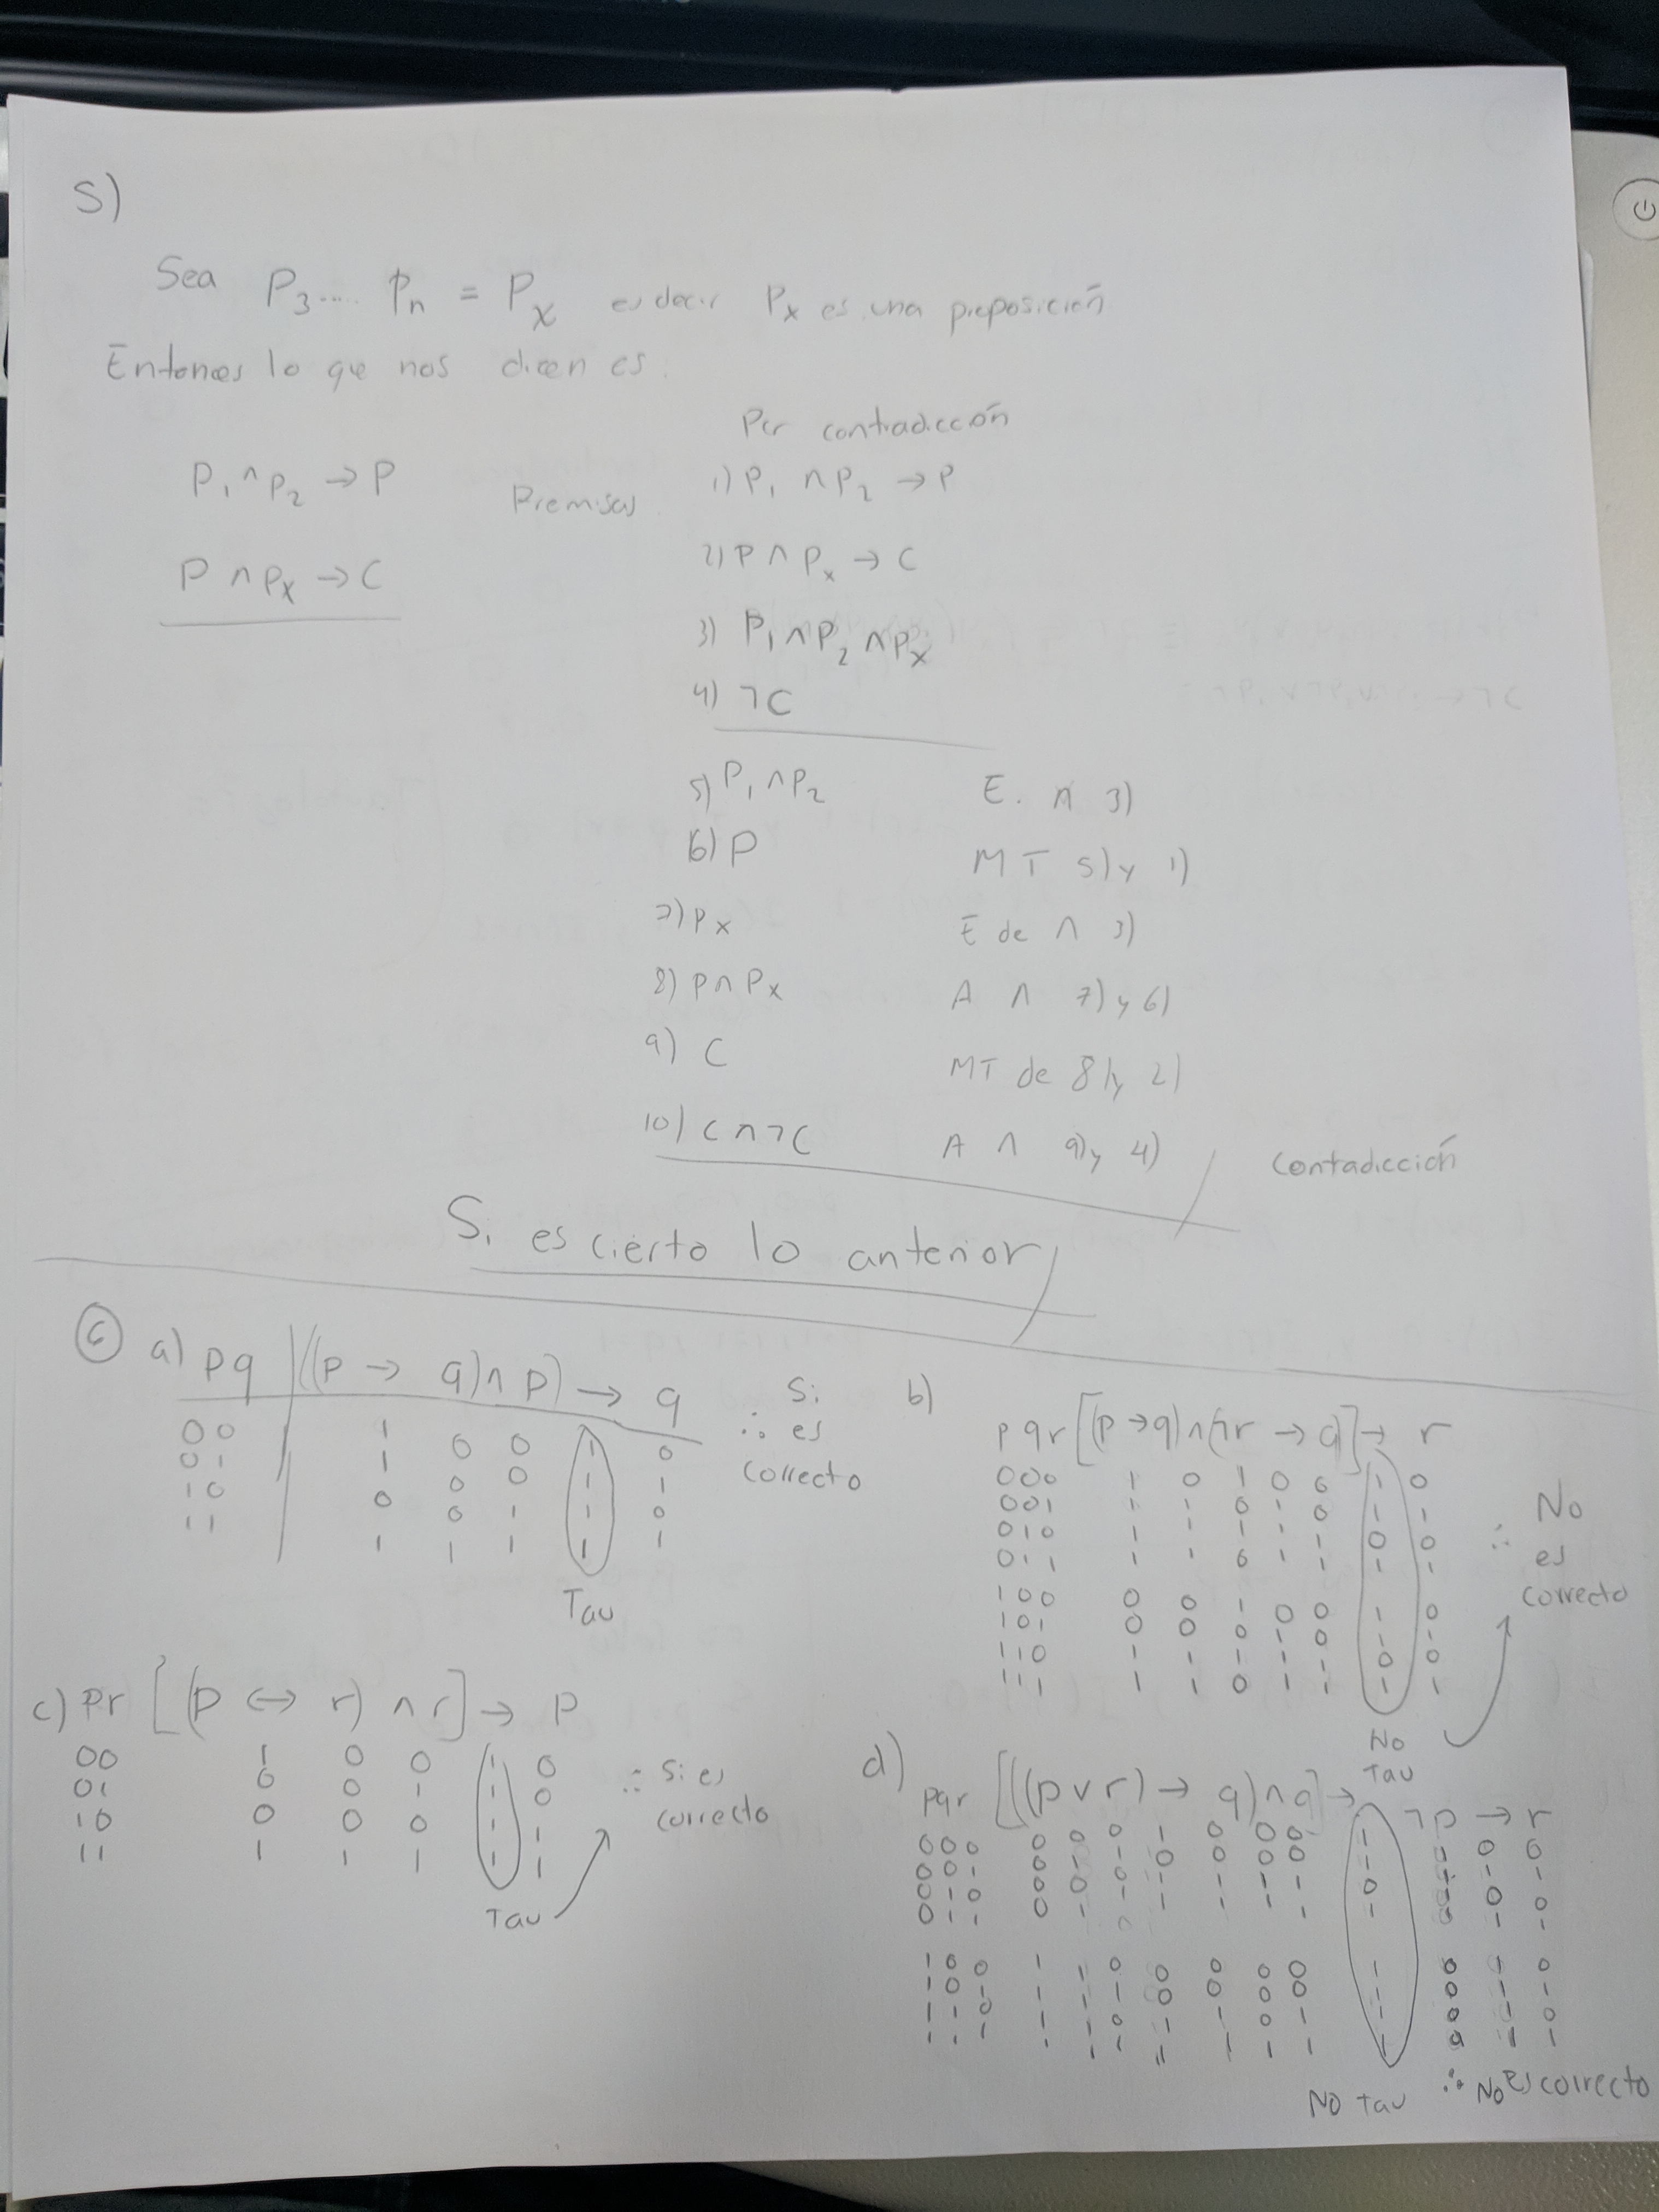 5)
Sea P₃.... Pₙ = Pₓ es decir Pₓ es una preposición
Entonces lo que nos dicen es:
Por contradicción
P₁ ∧ P₂ → P Premisas 1) P₁ ∧ P₂ → P
P ∧ Pₓ → C 2) P ∧ Pₓ → C
3) P₁ ∧ P₂ ∧ Pₓ
4) ¬C
5) P₁ ∧ P₂ E. ∧ 3)
6) P MT 5) y 1)
7) Pₓ E de ∧ 3)
8) P ∧ Pₓ A ∧ 7) y 6)
9) C MT de 8) y 2)
10) C ∧ ¬C A ∧ 9) y 4) Contadicción
Si es cierto lo anterior
6 a) p q ((p → q) ∧ p) → q
0 0 1 0 0 1 0
0 1 1 0 0 1 1
1 0 0 0 1 1 0
1 1 1 1 1 1 1
Tau
∴ Si es correcto
b) p q r [(p → q) ∧ (¬r → q)] → r
000 1 0 1 0 0 1 0
001 1 1 0 1 0 1 1
010 1 1 1 1 1 0 0
011 1 1 0 1 1 1 1
100 0 0 1 0 0 1 0
101 0 0 0 1 0 1 1
110 1 1 1 1 1 0 0
111 1 1 0 1 1 1 1
No Tau
∴ No es correcto
c) p r [(p ↔ r) ∧ r] → p
00 1 0 0 1 0
01 0 0 1 1 0
10 0 0 0 1 1
11 1 1 1 1 1
Tau
∴ Si es correcto
d) p q r [((p ∨ r) → q) ∧ q] → ¬p → r
000 0 0 0 1 0 0 0 1 1 0 0
001 0 1 1 0 0 0 0 1 1 1 1
010 0 0 0 1 1 1 1 0 1 0 0
011 0 1 1 1 1 1 1 1 1 1 1
100 1 1 0 0 0 0 0 1 0 1 0
101 1 1 1 0 0 0 0 1 0 1 1
110 1 1 0 1 1 0 1 1 0 1 0
111 1 1 1 1 1 1 1 1 0 1 1
No Tau ∴ No es correcto